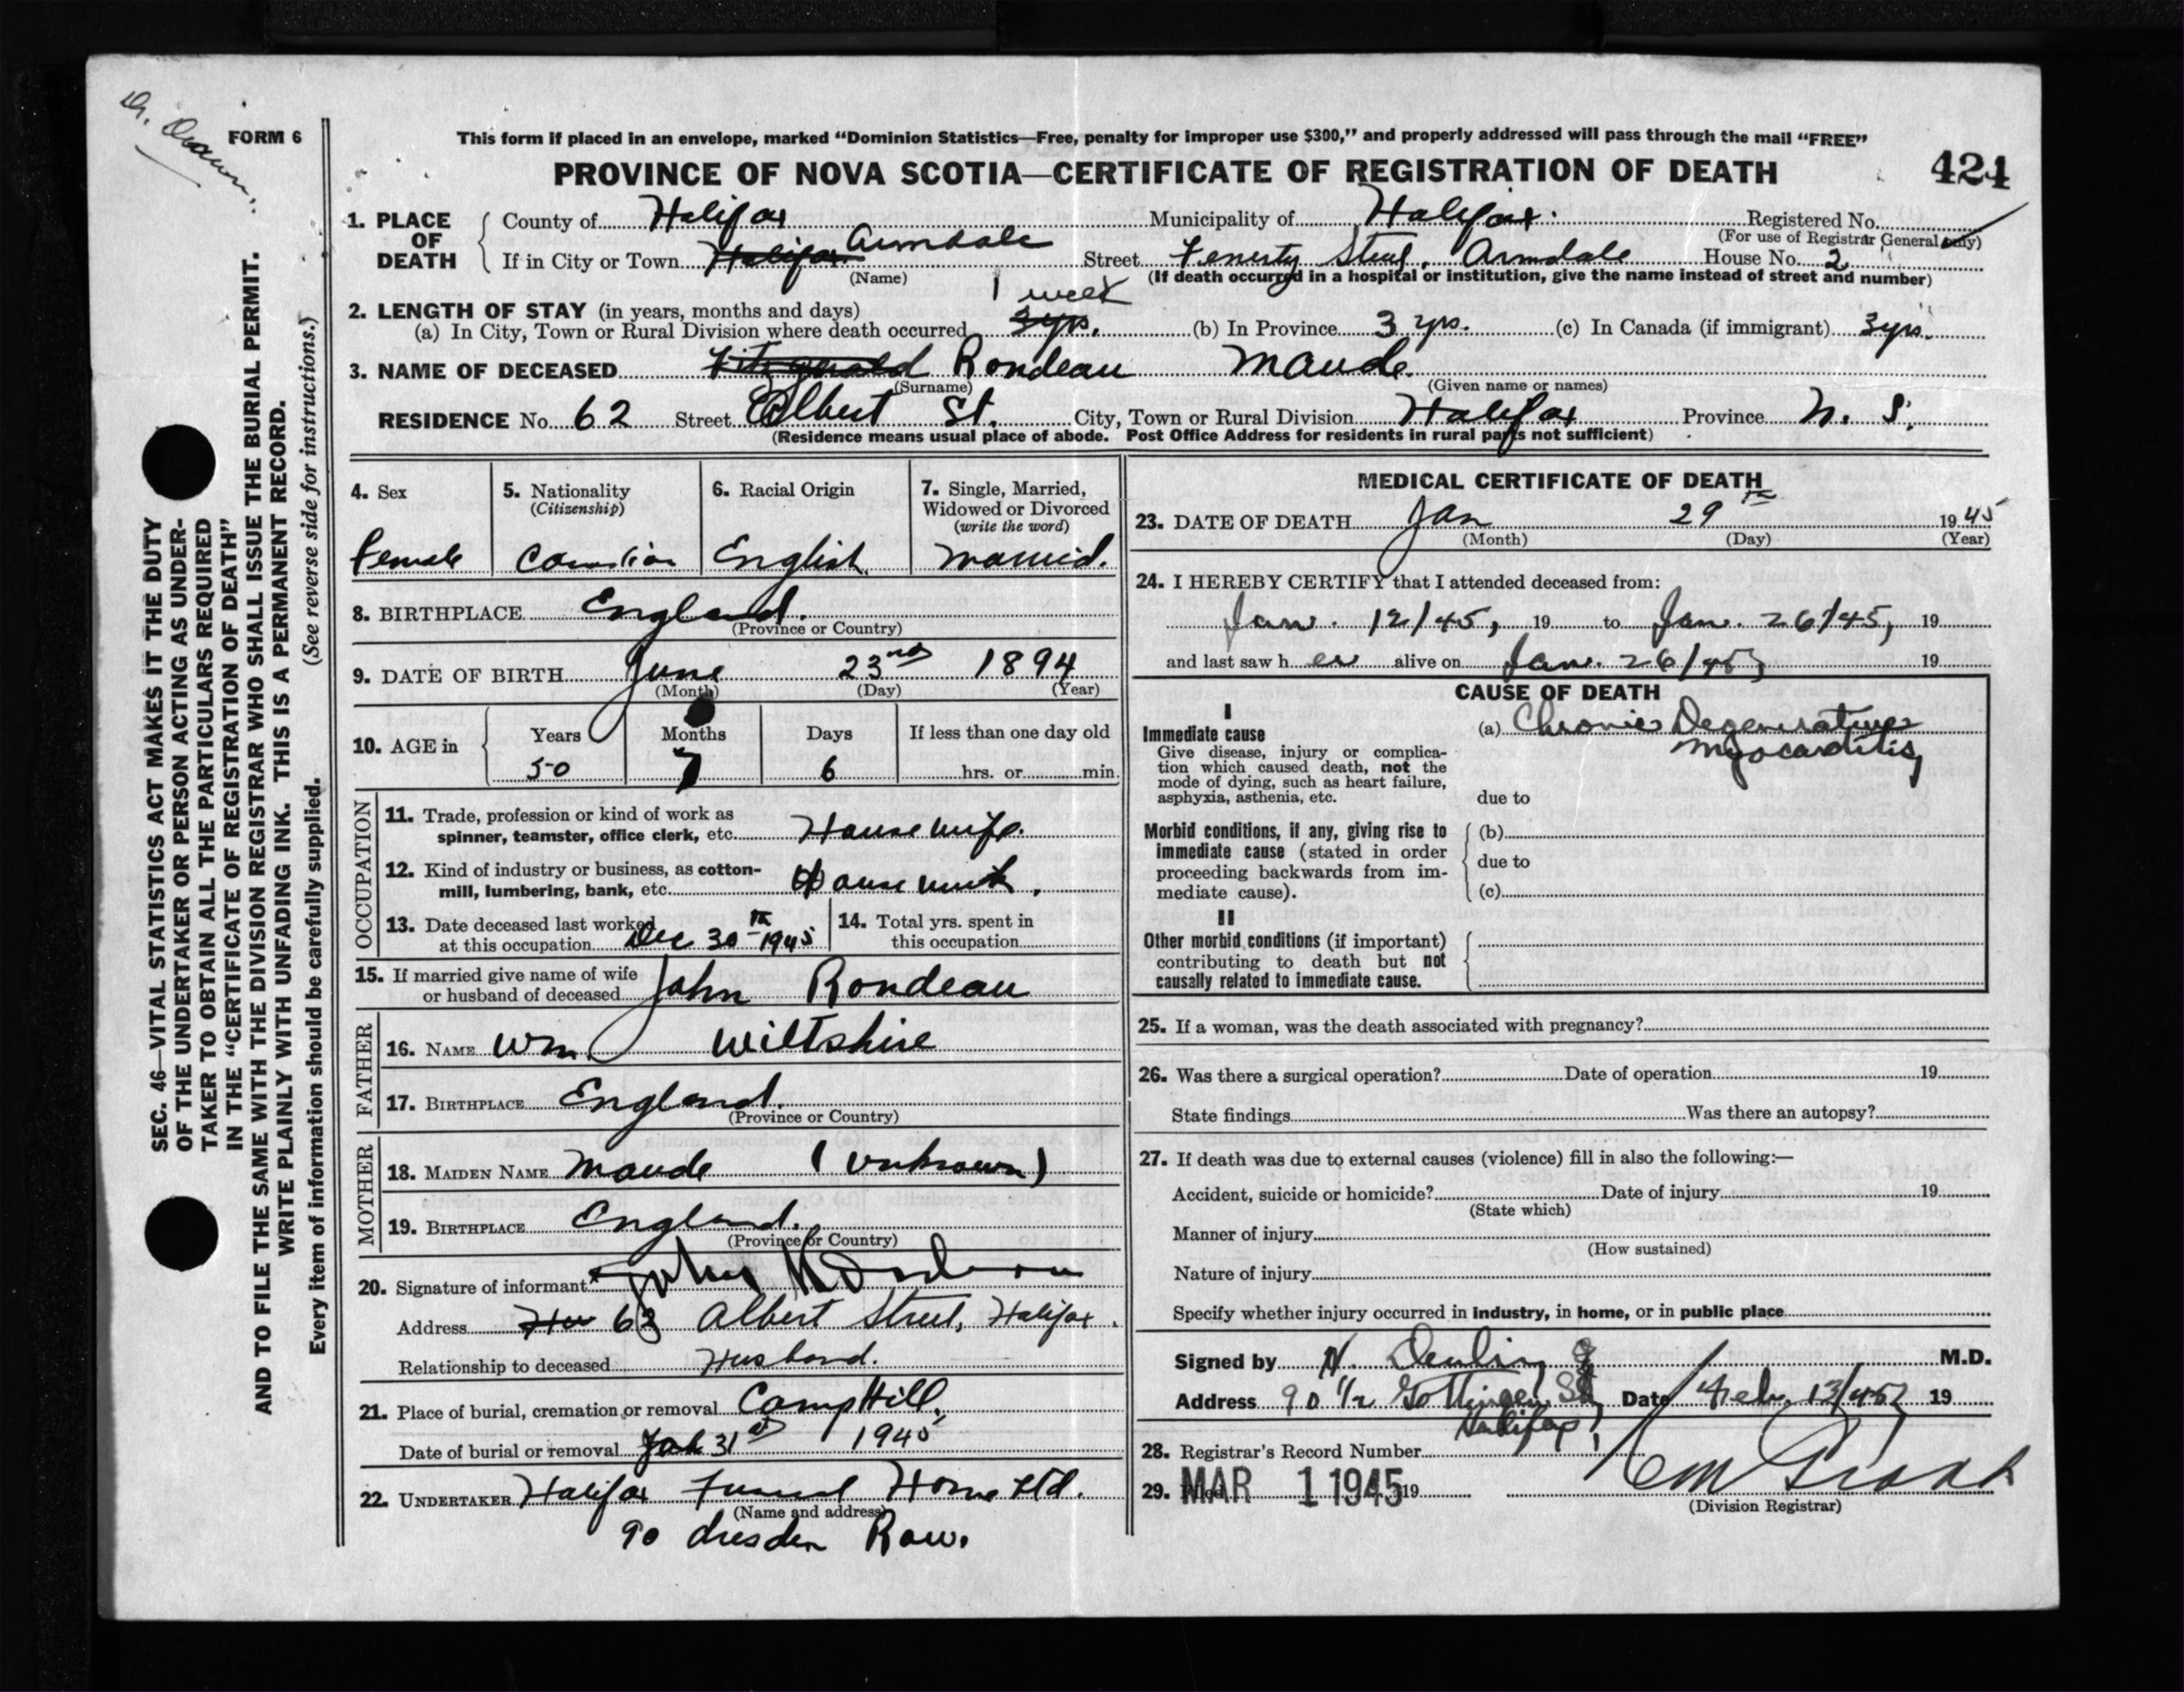 FORM 6
This form if placed in an envelope, marked “Dominion Statistics—Free, penalty for improper use $300,” and properly addressed will pass through the mail “FREE”
PROVINCE OF NOVA SCOTIA—CERTIFICATE OF REGISTRATION OF DEATH
424
1. PLACE OF DEATH County of Halifax Municipality of Halifax. Registered No.
(For use of Registrar General only)
If in City or Town Halifax Armdale Street Fenerty Street, Armdale House No. 2
(Name) (If death occurred in a hospital or institution, give the name instead of street and number)
2. LENGTH OF STAY (in years, months and days) 1 week
(a) In City, Town or Rural Division where death occurred 3 yrs. (b) In Province 3 yrs. (c) In Canada (if immigrant) 3 yrs.
3. NAME OF DECEASED Fitzgerald Rondeau Maude.
(Surname) (Given name or names)
RESIDENCE No. 62 Street Albert St. City, Town or Rural Division Halifax Province N. S.
(Residence means usual place of abode. Post Office Address for residents in rural parts not sufficient)
4. Sex
Female
5. Nationality
(Citizenship)
Canadian
6. Racial Origin
English
7. Single, Married,
Widowed or Divorced
(write the word)
Married.
8. BIRTHPLACE England.
(Province or Country)
9. DATE OF BIRTH June 23rd 1894
(Month) (Day) (Year)
10. AGE in Years Months Days If less than one day old
50 7 6 hrs. or min.
OCCUPATION
11. Trade, profession or kind of work as
spinner, teamster, office clerk, etc. Housewife.
12. Kind of industry or business, as cotton-
mill, lumbering, bank, etc. Housework.
13. Date deceased last worked
at this occupation Dec 30th 1945
14. Total yrs. spent in
this occupation
15. If married give name of wife
or husband of deceased John Rondeau
FATHER
16. NAME Wm. Wiltshire
17. BIRTHPLACE England.
(Province or Country)
MOTHER
18. MAIDEN NAME Maude (unknown)
19. BIRTHPLACE England.
(Province or Country)
20. Signature of informant John Rondeau
Address 63 Albert Street, Halifax.
Relationship to deceased Husband.
21. Place of burial, cremation or removal Camp Hill.
Date of burial or removal 31st 1945
22. UNDERTAKER Halifax Funeral Home Ltd.
(Name and address)
90 Dresden Row.
MEDICAL CERTIFICATE OF DEATH
23. DATE OF DEATH Jan 29th 1945
(Month) (Day) (Year)
24. I HEREBY CERTIFY that I attended deceased from:
Jan. 12/45, 19 to Jan. 26/45, 19
and last saw her alive on Jan. 26/45, 19
CAUSE OF DEATH
I
Immediate cause
Give disease, injury or complica-
tion which caused death, not the
mode of dying, such as heart failure,
asphyxia, asthenia, etc.
(a) Chronic Degenerative
Myocarditis,
due to
Morbid conditions, if any, giving rise to
immediate cause (stated in order
proceeding backwards from im-
mediate cause).
(b)
due to
(c)
II
Other morbid conditions (if important)
contributing to death but not
causally related to immediate cause.
25. If a woman, was the death associated with pregnancy?
26. Was there a surgical operation? Date of operation 19
State findings Was there an autopsy?
27. If death was due to external causes (violence) fill in also the following:—
Accident, suicide or homicide? Date of injury 19
(State which)
Manner of injury
(How sustained)
Nature of injury
Specify whether injury occurred in industry, in home, or in public place
Signed by H. M.D.
Address 90 1/2 Gottingen St, Date Feb. 13/45, 19
Halifax,
28. Registrar's Record Number
29. MAR 1 1945 19
(Division Registrar)
SEC. 46—VITAL STATISTICS ACT MAKES IT THE DUTY
OF THE UNDERTAKER OR PERSON ACTING AS UNDER-
TAKER TO OBTAIN ALL THE PARTICULARS REQUIRED
IN THE “CERTIFICATE OF REGISTRATION OF DEATH”
AND TO FILE THE SAME WITH THE DIVISION REGISTRAR WHO SHALL ISSUE THE BURIAL PERMIT.
WRITE PLAINLY WITH UNFADING INK. THIS IS A PERMANENT RECORD.
Every item of information should be carefully supplied. (See reverse side for instructions.)